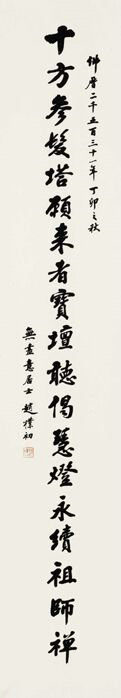 佛曆二千五百三十一年丁卯之秋
十方參髮塔願来者寶壇聽偈慧燈永續祖师禅
無盡意居士趙樸初